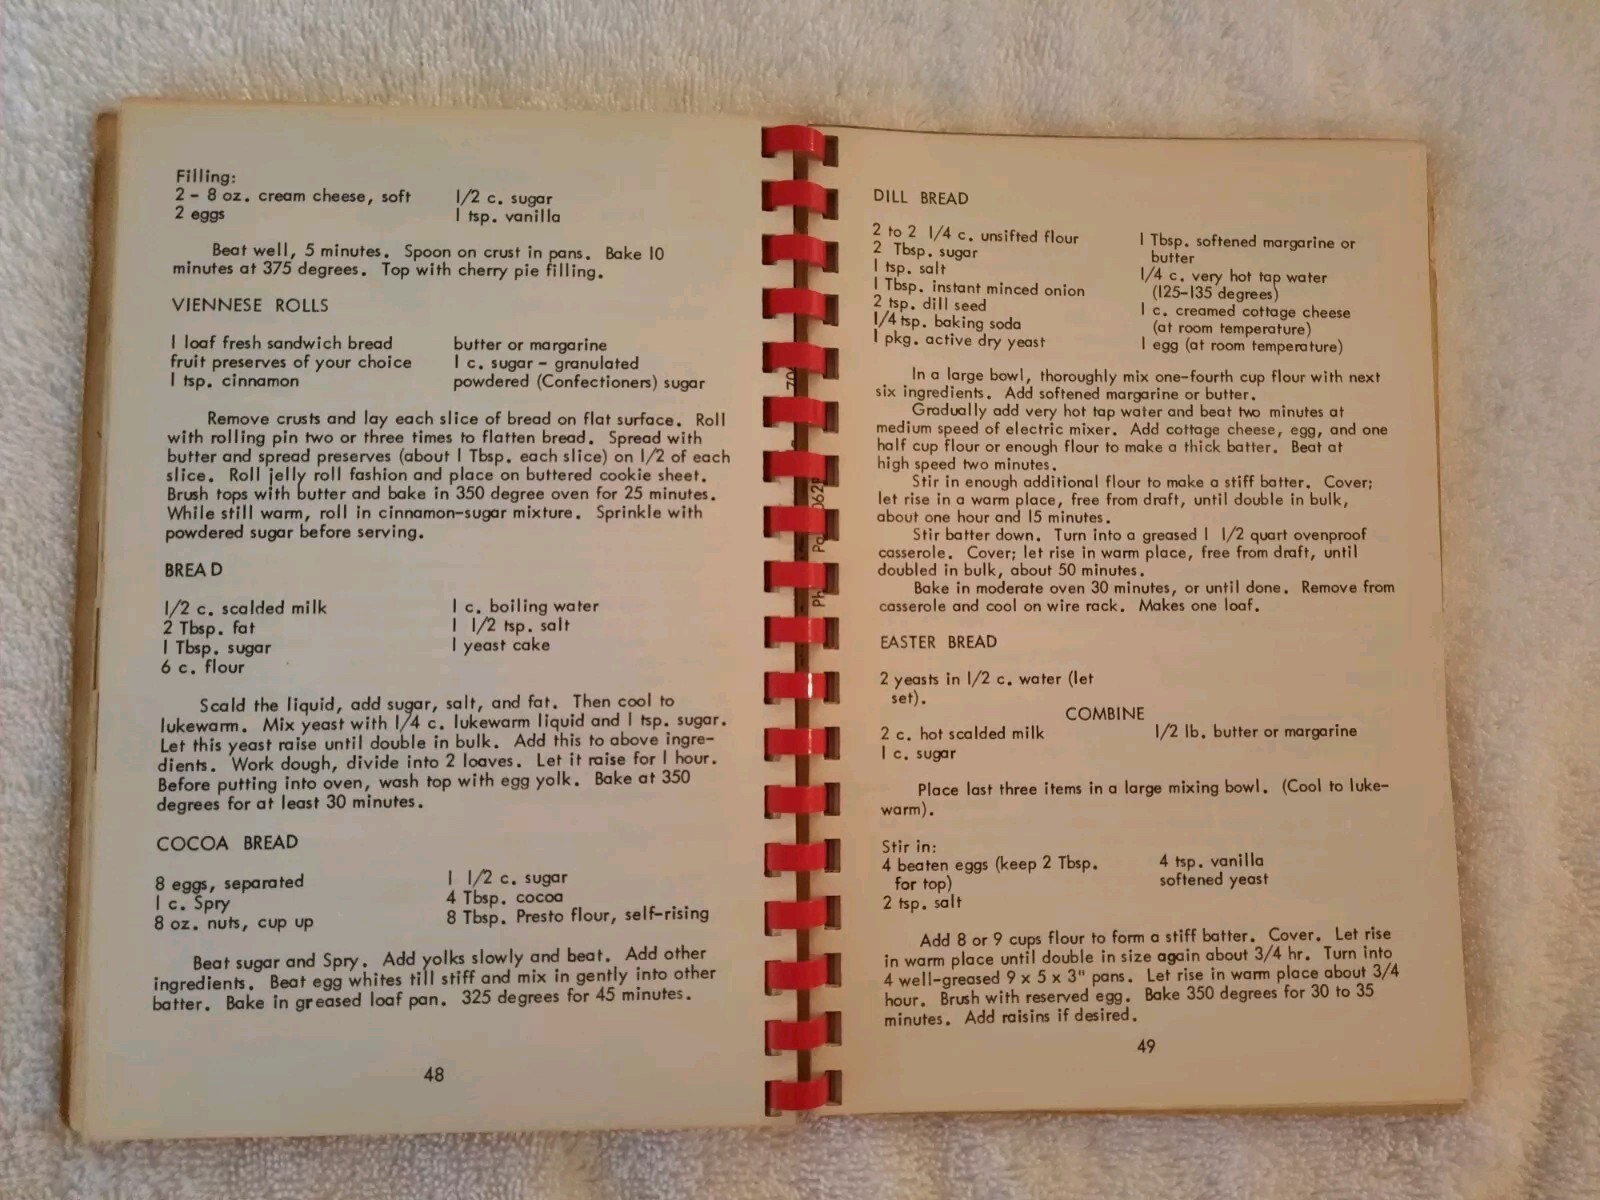 Filling:
2 - 8 oz. cream cheese, soft 1/2 c. sugar
2 eggs 1 tsp. vanilla
Beat well, 5 minutes. Spoon on crust in pans. Bake 10
minutes at 375 degrees. Top with cherry pie filling.
VIENNESE ROLLS
1 loaf fresh sandwich bread butter or margarine
fruit preserves of your choice 1 c. sugar - granulated
1 tsp. cinnamon powdered (Confectioners) sugar
Remove crusts and lay each slice of bread on flat surface. Roll
with rolling pin two or three times to flatten bread. Spread with
butter and spread preserves (about 1 Tbsp. each slice) on 1/2 of each
slice. Roll jelly roll fashion and place on buttered cookie sheet.
Brush tops with butter and bake in 350 degree oven for 25 minutes.
While still warm, roll in cinnamon-sugar mixture. Sprinkle with
powdered sugar before serving.
BREAD
1/2 c. scalded milk 1 c. boiling water
2 Tbsp. fat 1 1/2 tsp. salt
1 Tbsp. sugar 1 yeast cake
6 c. flour
Scald the liquid, add sugar, salt, and fat. Then cool to
lukewarm. Mix yeast with 1/4 c. lukewarm liquid and 1 tsp. sugar.
Let this yeast raise until double in bulk. Add this to above ingre-
dients. Work dough, divide into 2 loaves. Let it raise for 1 hour.
Before putting into oven, wash top with egg yolk. Bake at 350
degrees for at least 30 minutes.
COCOA BREAD
8 eggs, separated 1 1/2 c. sugar
1 c. Spry 4 Tbsp. cocoa
8 oz. nuts, cup up 8 Tbsp. Presto flour, self-rising
Beat sugar and Spry. Add yolks slowly and beat. Add other
ingredients. Beat egg whites till stiff and mix in gently into other
batter. Bake in greased loaf pan. 325 degrees for 45 minutes.
48
DILL BREAD
2 to 2 1/4 c. unsifted flour
2 Tbsp. sugar
1 tsp. salt
1 Tbsp. instant minced onion
2 tsp. dill seed
1/4 tsp. baking soda
1 pkg. active dry yeast
1 Tbsp. softened margarine or
butter
1/4 c. very hot tap water
(125-135 degrees)
1 c. creamed cottage cheese
(at room temperature)
1 egg (at room temperature)
In a large bowl, thoroughly mix one-fourth cup flour with next
six ingredients. Add softened margarine or butter.
Gradually add very hot tap water and beat two minutes at
medium speed of electric mixer. Add cottage cheese, egg, and one
half cup flour or enough flour to make a thick batter. Beat at
high speed two minutes.
Stir in enough additional flour to make a stiff batter. Cover;
let rise in a warm place, free from draft, until double in bulk,
about one hour and 15 minutes.
Stir batter down. Turn into a greased 1 1/2 quart ovenproof
casserole. Cover; let rise in warm place, free from draft, until
doubled in bulk, about 50 minutes.
Bake in moderate oven 30 minutes, or until done. Remove from
casserole and cool on wire rack. Makes one loaf.
EASTER BREAD
2 yeasts in 1/2 c. water (let
set).
COMBINE
2 c. hot scalded milk 1/2 lb. butter or margarine
1 c. sugar
Place last three items in a large mixing bowl. (Cool to luke-
warm).
Stir in:
4 beaten eggs (keep 2 Tbsp. 4 tsp. vanilla
for top) softened yeast
2 tsp. salt
Add 8 or 9 cups flour to form a stiff batter. Cover. Let rise
in warm place until double in size again about 3/4 hr. Turn into
4 well-greased 9 x 5 x 3" pans. Let rise in warm place about 3/4
hour. Brush with reserved egg. Bake 350 degrees for 30 to 35
minutes. Add raisins if desired.
49